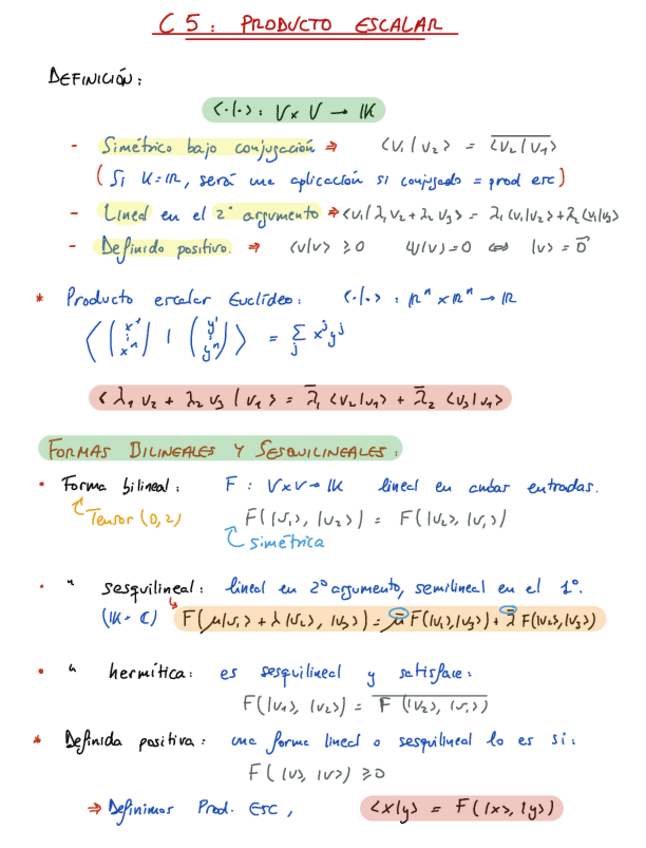 C 5 : PRODUCTO ESCALAR
DEFINICIÓN:
<·|·> : V x V → IK
- Simétrico bajo conjugación ⇒ <v₁|v₂> = \overline{<v₂|v₁>}
(Si IK = IR, será una aplicación si conjugado = prod esc)
- Lineal en el 2º argumento ⇒ <v₁|λ₁v₂+λ₂v₃> = λ₁<v₁|v₂>+λ₂<v₁|v₃>
- Definido positivo. ⇒ <v|v> ≥ 0 <v|v> = 0 ⇔ |v> = \vec{0}
* Producto escalar Euclídeo: <·|·> : IRⁿ x IRⁿ → IR
⟨(x¹ ⋮ xⁿ) | (y¹ ⋮ yⁿ)⟩ = Σ_j x^j y^j
<λ₁ v₂ + λ₂ v₃ | v₁> = \overline{λ}₁ <v₂|v₁> + \overline{λ}₂ <v₃|v₁>
FORMAS BILINEALES Y SESQUILINEALES:
• Forma bilineal: F : V x V → IK lineal en ambas entradas.
Tensor (0,2) F(|v₁>, |v₂>) = F(|v₂>, |v₁>)
simétrica
• " sesquilineal: lineal en 2º argumento, semilineal en el 1º.
(IK = C) F(μ|v₁> + λ|v₂>, |v₃>) = \overline{μ} F(|v₁>,|v₃>) + \overline{λ} F(|v₂>,|v₃>)
• " hermítica: es sesquilineal y satisface:
F(|v₁>, |v₂>) = \overline{F(|v₂>, |v₁>)}
* Definida positiva: una forma lineal o sesquilineal lo es si:
F(|v>, |v>) ≥ 0
⇒ Definimos Prod. Esc, <x|y> = F(|x>, |y>)